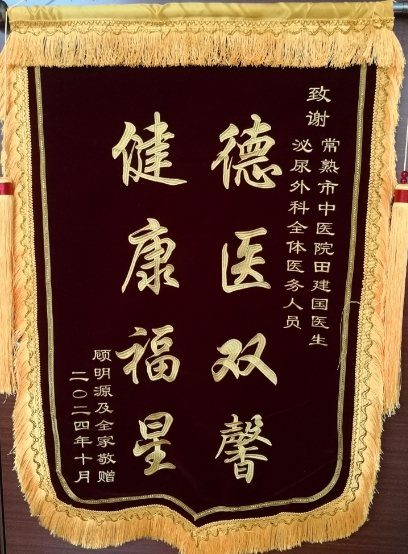 致谢
常熟市中医院田建国医生
泌尿外科全体医务人员
德医双馨
健康福星
顾明源及全家敬赠
二〇二四年十月